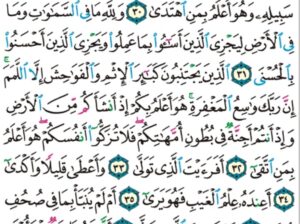 سَبِيلِهِۦ وَهُوَ أَعْلَمُ بِمَنِ ٱهْتَدَىٰ ٣٠ وَلِلَّهِ مَا فِى ٱلسَّمَٰوَٰتِ وَمَا
فِى ٱلْأَرْضِ لِيَجْزِىَ ٱلَّذِينَ أَسَٰٓـُٔوا۟ بِمَا عَمِلُوا۟ وَيَجْزِىَ ٱلَّذِينَ أَحْسَنُوا۟
بِٱلْحُسْنَى ٣١ ٱلَّذِينَ يَجْتَنِبُونَ كَبَٰٓئِرَ ٱلْإِثْمِ وَٱلْفَوَٰحِشَ إِلَّا ٱللَّمَمَ ۚ
إِنَّ رَبَّكَ وَٰسِعُ ٱلْمَغْفِرَةِ ۚ هُوَ أَعْلَمُ بِكُمْ إِذْ أَنشَأَكُم مِّنَ ٱلْأَرْضِ
وَإِذْ أَنتُمْ أَجِنَّةٌ فِى بُطُونِ أُمَّهَٰتِكُمْ ۖ فَلَا تُزَكُّوٓا۟ أَنفُسَكُمْ ۖ هُوَ أَعْلَمُ
بِمَنِ ٱتَّقَىٰٓ ٣٢ أَفَرَءَيْتَ ٱلَّذِى تَوَلَّىٰ ٣٣ وَأَعْطَىٰ قَلِيلًا وَأَكْدَىٰٓ
٣٤ أَعِندَهُۥ عِلْمُ ٱلْغَيْبِ فَهُوَ يَرَىٰٓ ٣٥ أَمْ لَمْ يُنَبَّأْ بِمَا فِى صُحُفِ